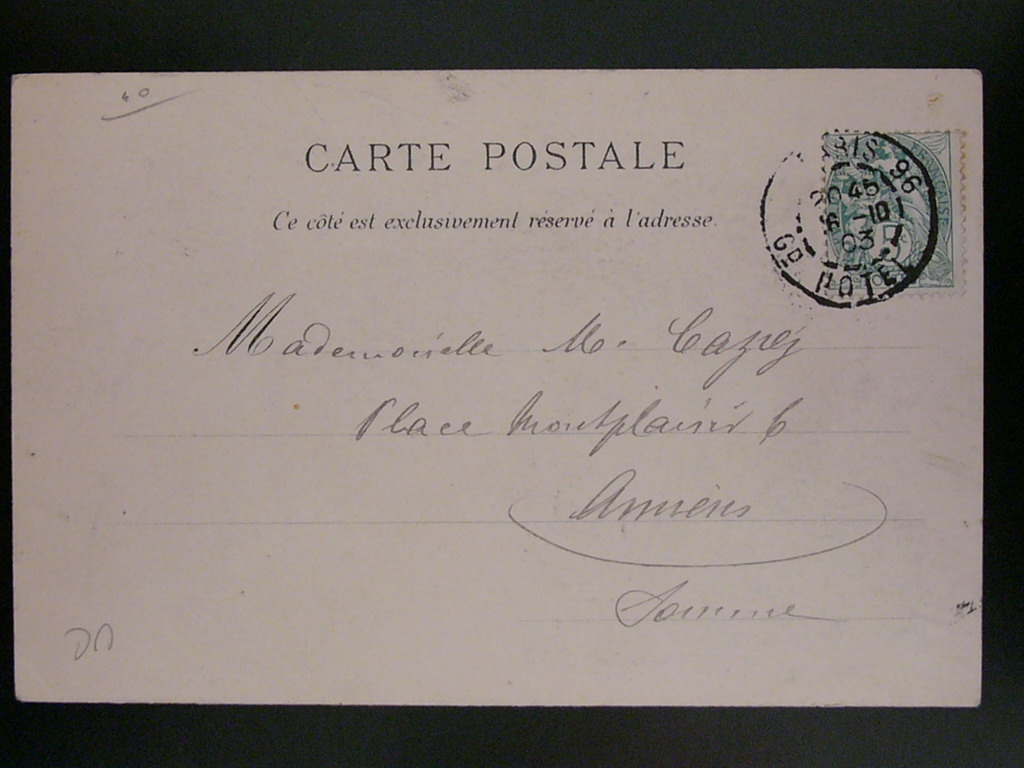 40
CARTE POSTALE
Ce côté est exclusivement réservé à l'adresse.
PARIS 96
20 45
6 -10
03
GD HOTEL
Mademoiselle M.
Place Montplaisir 6
Amiens
Somme